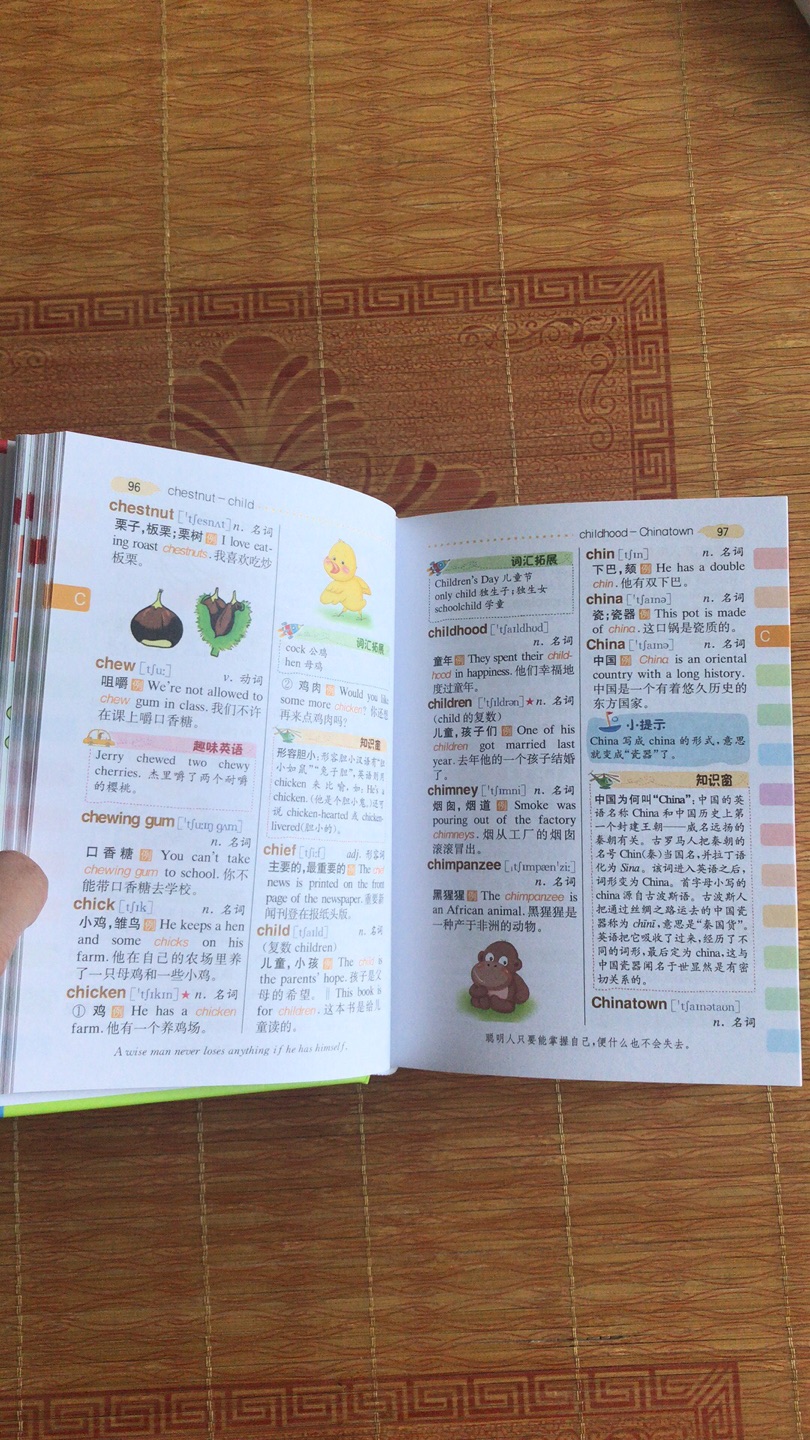 96
chestnut – child
chestnut [ˈtʃesnʌt] n. 名词
栗子,板栗;栗树 例 I love eat-
ing roast chestnuts. 我喜欢吃炒
板栗。
C
chew [tʃuː] v. 动词
咀嚼 例 We're not allowed to
chew gum in class. 我们不许
在课上嚼口香糖。
趣味英语
Jerry chewed two chewy
cherries. 杰里嚼了两个耐嚼
的樱桃。
chewing gum [ˈtʃuːɪŋ ɡʌm]
n. 名词
口香糖 例 You can't take
chewing gum to school. 你不
能带口香糖去学校。
chick [tʃɪk] n. 名词
小鸡,雏鸟 例 He keeps a hen
and some chicks on his
farm. 他在自己的农场里养
了一只母鸡和一些小鸡。
chicken [ˈtʃɪkɪn] ★ n. 名词
① 鸡 例 He has a chicken
farm. 他有一个养鸡场。
词汇拓展
cock 公鸡
hen 母鸡
② 鸡肉 例 Would you like
some more chicken? 你还想
再来点鸡肉吗?
知识窗
形容胆小:形容胆小汉语有“胆
小如鼠”“兔子胆”,英语则用
chicken 来比喻,如: He's a
chicken. (他是个胆小鬼。)还可
说 chicken-hearted 或 chicken-
livered(胆小的)。
chief [tʃiːf] adj. 形容词
主要的,最重要的 例 The chief
news is printed on the front
page of the newspaper. 重要新
闻刊登在报纸头版。
child [tʃaɪld] n. 名词
(复数 children)
儿童,小孩 例 The child is
the parents' hope. 孩子是父
母的希望。 ‖ This book is
for children. 这本书是给儿
童读的。
A wise man never loses anything if he has himself.
childhood – Chinatown
97
词汇拓展
Children's Day 儿童节
only child 独生子;独生女
schoolchild 学童
childhood [ˈtʃaɪldhʊd]
n. 名词
童年 例 They spent their child-
hood in happiness. 他们幸福地
度过童年。
children [ˈtʃɪldrən] ★ n. 名词
(child 的复数)
儿童,孩子们 例 One of his
children got married last
year. 去年他的一个孩子结婚
了。
chimney [ˈtʃɪmni] n. 名词
烟囱,烟道 例 Smoke was
pouring out of the factory
chimneys. 烟从工厂的烟囱
滚滚冒出。
chimpanzee [ˌtʃɪmpænˈziː]
n. 名词
黑猩猩 例 The chimpanzee is
an African animal. 黑猩猩是
一种产于非洲的动物。
chin [tʃɪn] n. 名词
下巴,颏 例 He has a double
chin. 他有双下巴。
china [ˈtʃaɪnə] n. 名词
瓷;瓷器 例 This pot is made
of china. 这口锅是瓷质的。
China [ˈtʃaɪnə] n. 名词
中国 例 China is an oriental
country with a long history.
中国是一个有着悠久历史的
东方国家。
C
小提示
China 写成 china 的形式,意思
就变成“瓷器”了。
知识窗
中国为何叫“China”:中国的英
语名称 China 和中国历史上第
一个封建王朝——威名远扬的
秦朝有关。古罗马人把秦朝的
名号 Chin(秦)当国名,并拉丁语
化为 Sina。该词进入英语之后,
词形变为 China。首字母小写的
china 源自古波斯语。古波斯人
把通过丝绸之路运去的中国瓷
器称为 chīnī,意思是“秦国货”。
英语把它吸收了过来,经历了不
同的词形,最后定为 china,这与
中国瓷器闻名于世显然是有密
切关系的。
Chinatown [ˈtʃaɪnətaʊn]
n. 名词
聪明人只要能掌握自己,便什么也不会失去。